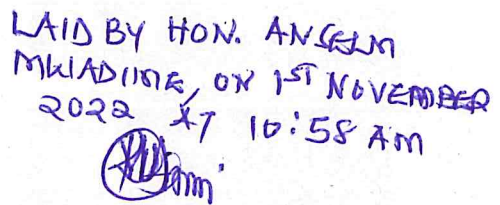 LAID BY HON. ANSELM
MWADIME, ON 1ST NOVEMBER
2022 AT 10:58 AM